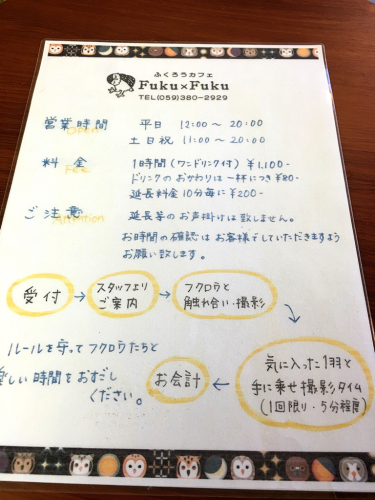 ふくろうカフェ
Fuku×Fuku
TEL(059)380-2929
営業時間 Open 平日 12:00～20:00
土日祝 11:00～20:00
料金 Fee 1時間(ワンドリンク付) ¥1,100-
ドリンクのおかわりは一杯につき¥80-
延長料金10分毎に¥200-
ご注意 Attention 延長等のお声掛けは致しません。
お時間の確認はお客様でしていただきますよう
お願い致します。
受付 → スタッフより ご案内 → フクロウと 触れ合い・撮影
気に入った1羽と
手に乗せ撮影タイム
(1回限り・5分程度)
← お会計
ルールを守ってフクロウたちと
楽しい時間をおすごし
ください。